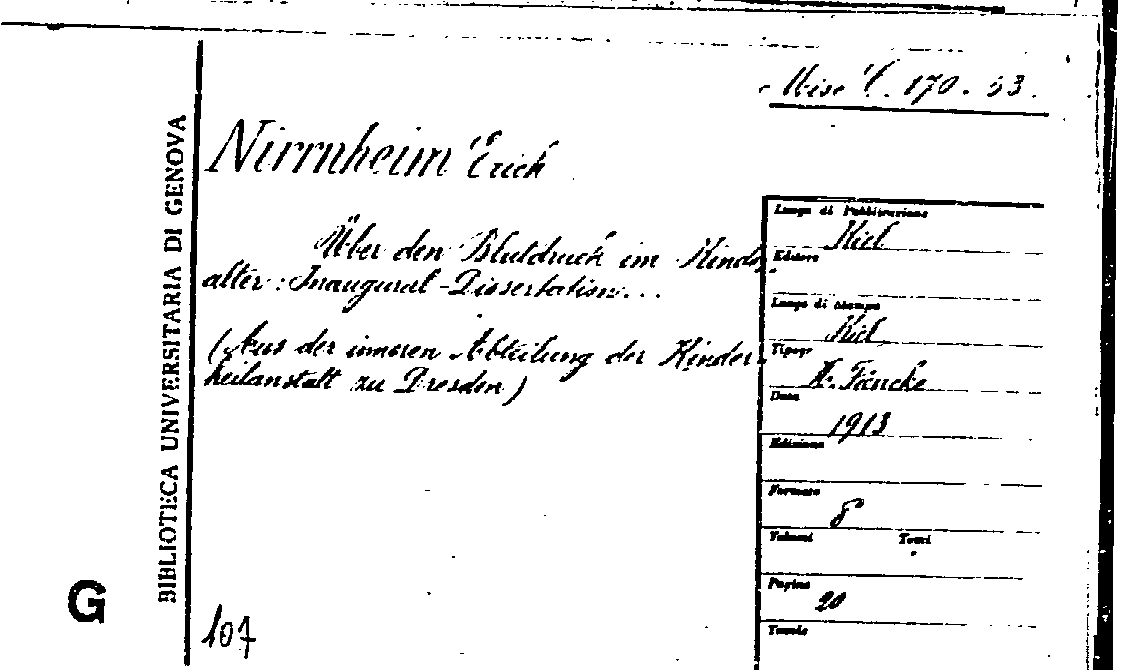 Misc. C. 170. 53.
BIBLIOTECA UNIVERSITARIA DI GENOVA
Nirrnheim Erich
Über den Blutdruck im Kindes-
alter: Inaugural-Dissertation...
(Aus der inneren Abteilung der Kinder-
heilanstalt zu Dresden)
Luogo di Pubblicazione
Kiel
Editore
Luogo di stampa
Kiel
Tipogr.
Data
1913
Edizione
Formato
8°
Volumi Tomi
Pagine
20
Tavole
G
107